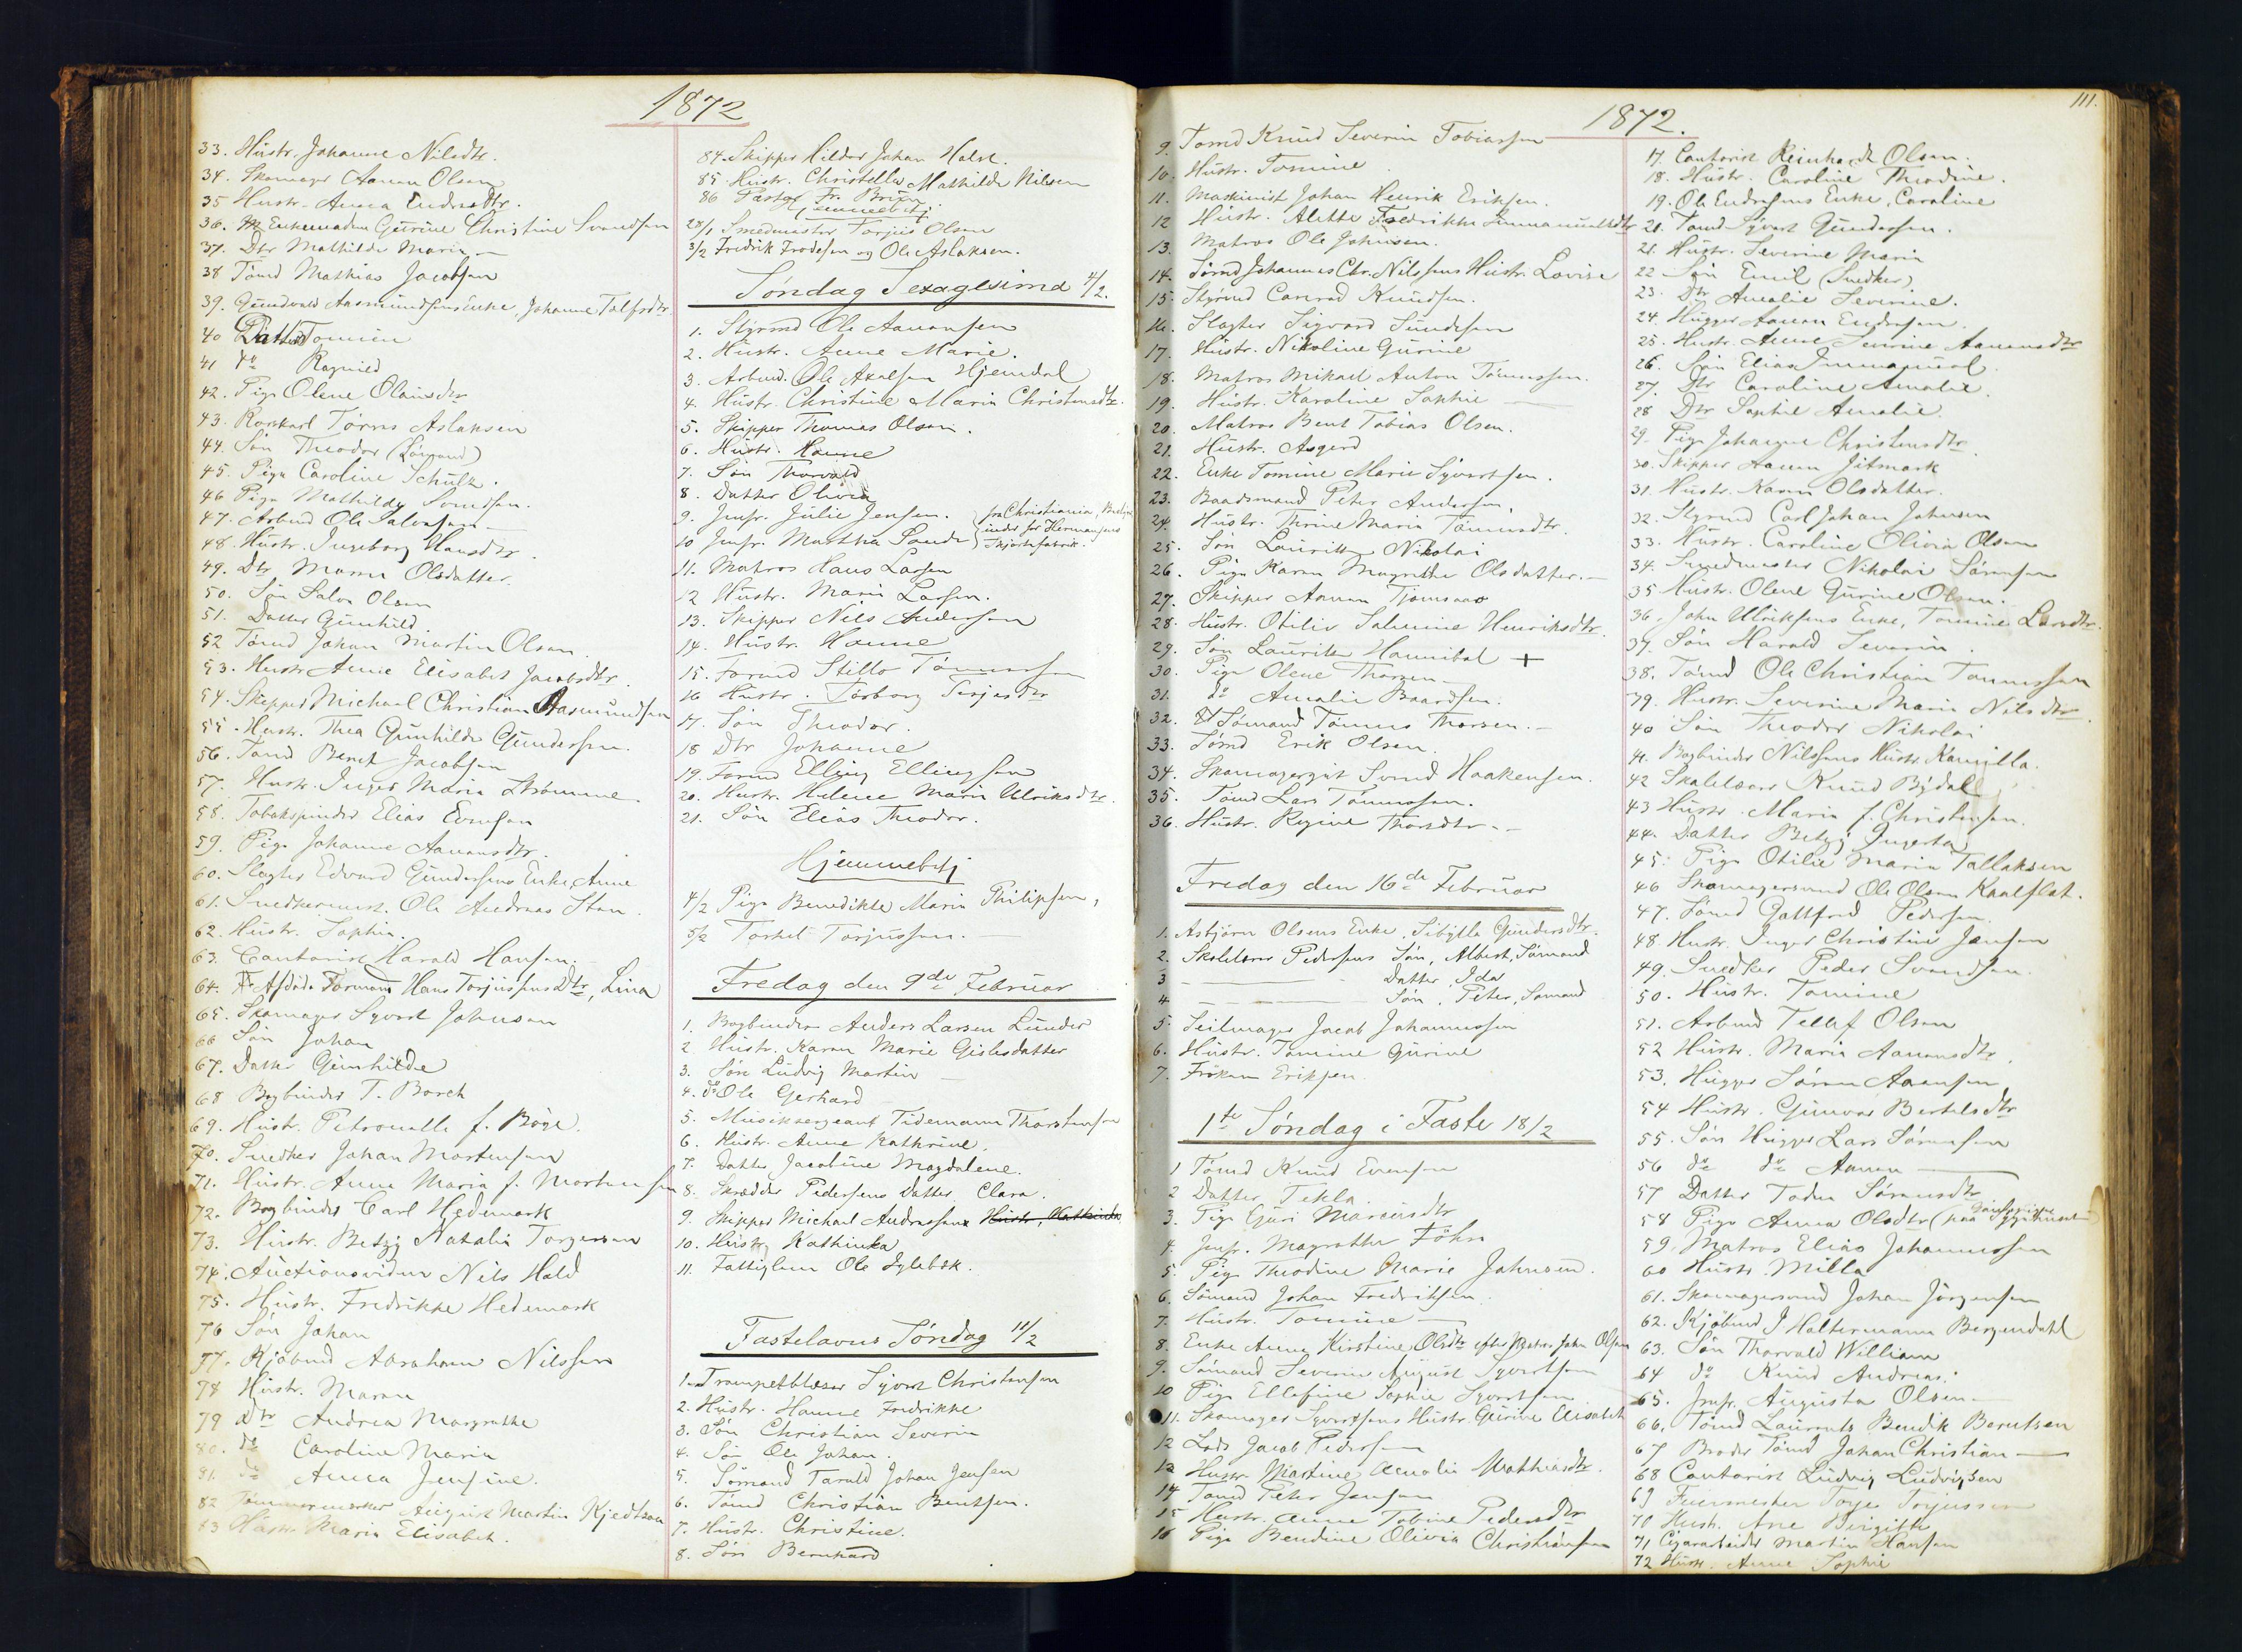 1872
33. Hustr. Johanne Nilsdtr.
34. Skomager Aanen Olsen
35 Hustr. Anna Endresdtr.
36. Enkemadam Gurine Christine Svendsen
37. Dtr Mathilde Marie
38 Tømd Mathias Jacobsen
39. Gundvald Aasmundsens Enke, Johanne Tolfsdtr
40 Datter Tomine
41 do Ragnild
42. Pige Olene Olausdtr
43. Rorskarl Tørres Aslaksen
44. Søn Theodor (Sømand)
45. Pige Caroline Schulz.
46 Pige Mathilde Svendsen.
47. Arbmd Ole Salvesen
48. Hustr. Ingeborg Hansdtr.
49. Dtr Maren Olsdatter.
50. Søn Salve Olsen
51. Datter Gunhild
52 Tømd Johan Martin Olsen
53. Hustr Anne Elisabet Jacobsdtr.
54. Skipper Michael Christian Aasmundsen
55. Hustr. Thea Gunhilde Gundersen.
56. Tømd Berent Jacobsen
57. Hustr. Inger Maria Strømme
58. Tobakspinder Elias Evensen
59. Pige Johanne Aanensdtr.
60. Slagter Edvard Gundersens Enke, Anne
61. Snedkermest. Ole Andreas Sten
62. Hustr. Sophie.
63. Contorist Harald Hansen.
64. Afdøde Formand Hans Torjussens Dtr, Lina
65. Skomager Syvert Johnsen
66 Søn Johan
67. Datter Gunhilde
68 Bogbinder T. Borch
69. Hustr. Petronelle f. Bøge.
70. Snedker Johan Mortensen
71. Hustr. Anne Maria f. Mortensen
72. Bogbinder Carl Hedemark
73. Hustr. Betzy Natalie Torgersen
74. Auctionsvidne Nils Hald
75. Hustr. Fredrikke Hedemark
76 Søn Johan
77. Kjøbmd Abraham Nilssen
78 Hustr. Maren
79 Dtr Andrea Margrethe
80. do Caroline Marie
81. do Anna Jensine.
82 Tømmermærker August Martin Kjedtson
83 Hustr. Marie Elisabeth.
84. Skipper Hildor Johan Holst.
85. Hustr. Christella Mathilde Nilsen
86 Pastor Fr. Brun
Hjemmebetj.
28/1 Smedmester Torjus Olsen
3/2 Fredrik Frodesen og Ole Aslaksen.
Søndag Sexagesima 4/2.
1. Styrmd Ole Aanensen
2. Hustr. Anne Marie.
3. Arbmd. Ole Axelsen Hjemdal
4. Hustr. Christine Maria Christensdtr.
5. Skipper Thomas Olsen.
6. Hustr. Hanne
7. Søn Thorvald
8. Datter Olivia
9. Jmfr. Julie Jensen. } fra Christiania,
10 Jmfr. Martha Sande } inder for Hermansens Skjortefabrik.
11. Matros Hans Larsen
12 Hustr. Marie Larsen.
13. Skipper Nils Andersen
14. Hustr. Hanne
15. Formd Stillo Tønnessen
16 Hustr. Torborg Terjesdtr
17. Søn Theodor.
18 Dtr Johanne
19. Formd Elling Ellingsen
20. Hustr. Helene Marie Ulriksdtr.
21. Søn Elias Theodor.
Hjemmebetj
4/2 Pige Benedikte Marie Philipsen,
5/2 Torkel Torjussen.
Fredag den 9de Februar
1. Bogbinder Anders Larsen Lunder
2 Hustr. Karen Marie Gislesdatter
3. Søn Ludvig Martin
4. do Ole Gerhard
5. Musiksergeant Tidemann Thorstensen
6. Hustr. Anne Kathrine.
7. Datter Jacobine Magdalene.
8. Skrædder Pedersens Datter Clara.
9. Skipper Michael Andreassen Hustr, Kathinka
10. Hustr Kathinka
11. Fattiglem Ole Sylebæk.
Fastelavns Søndag 11/2
1. Trompetblæser Syvert Christensen
2. Hustr. Hanne Fredrikke
3. Søn Christian Severin
4. Søn Ole Johan.
5. Sømand Tarald Johan Jensen
6. Tømd Christian Bentsen.
7. Hustr. Christine.
8. Søn Bernhard
111.
1872.
9. Tømd Knud Severin Tobiassen
10. Hustr. Tomine
11. Maskinist Johan Henrik Eriksen.
12 Hustr. Alette Fredrikke Immanuelsdtr
13. Matros Ole Johnsen.
14. Sømd Johannes Chr. Nilssens Hustr. Lovise
15. Styrmd Conrad Knudsen.
16. Slagter Sigvard Sundesen
17. Hustr. Nikoline Gurine
18. Matros Mikael Anton Tønnessen.
19. Hustr. Karoline Sophie
20. Matros Bent Tobias Olsen.
21. Hustr. Asgerd
22. Enke Tomine Marie Syvertsen.
23. Baadsmand Peter Andersen,
24. Hustr. Thrine Maria Tønnesdtr.
25. Søn Lauritz Nikolai
26. Pige Karen Magrethe Olsdatter.
27. Skipper Aanen Tjomsaas
28. Hustr. Otilie Salmine Henriksdtr.
29. Søn Lauritz Hannibal +
30. Pige Olene Thorsen
31. do Amalie Baardsen.
32. Sømand Tønnes Thorsen.
33. Sømd Erik Olsen.
34. Skomagergut Svend Haakensen.
35. Tømd Lars Tønnessen.
36. Hustr. Regine Thorsdtr.
Fredag den 16de Februar
1. Asbjørn Olsens Enke, Sibylle Gundersdtr.
2. Skolelærer Pedersens Søn, Albert, Sømand
3 Datter, Ida
4. Søn, Peter, Sømand
5. Seilmager Jacob Johannessen
6. Hustr. Tomine Gurine
7. Frøken Eriksen.
1te Søndag i Faste 18/2
1 Tømd Knud Evensen
2 Datter Tekla.
3. Pige Guri Marcusdtr
4. Jmfr. Magrethe Føhn
5. Pige Theodine Marie Johnsen.
6. Sømand Johan Fredriksen.
7. Hustr. Tomine
8. Enke Anne Kirstine Olsdtr efter Matros John Olsen
9. Sømand Severin August Syvertsen
10 Pige Ellefine Sophie Syvertsen
11. Skomager Syvertsens Hustr. Gurine Elisabeth
12 Lods Jacob Pedersen
13 Hustr. Martine Amalie Mathiasdtr.
14 Tømd Peter Jensen
15 Hustr. Anne Tobine Pedersdtr
16 Pige Bendine Olivia Christiansen
17. Contorist Reinhardt Olsen.
18. Hustr. Caroline Theodine.
19. Ole Endresens Enke, Caroline
20. Tømd Syvert Gundersen.
21. Hustr. Severine Maria
22 Søn Emil (Snedker)
23. Dtr Amalie Severine.
24. Hugger Aanen Endresen.
25. Hustr. Anne Severine Aanensdtr
26. Søn Elias Immanuel.
27. Dtr Caroline Amalie.
28 Dtr Sophie Amalie.
29. Pige Johanne Christensdtr.
30. Skipper Aanen Jitmark
31. Hustr. Karen Olsdatter.
32. Styrmd Carl Johan Johnsen
33. Hustr. Caroline Olivia Olsen
34. Smedmester Nikolai Sørensen
35 Hustr. Olene Gurine Olsen.
36. John Ulriksens Enke, Tomine Larsdtr.
37. Søn Harald Severin.
38. Tømd Ole Christian Tønnessen
39. Hustr. Severine Marie Nilsdtr.
40 Søn Theodor Nikolai
41. Bogbinder Nilssens Hustr. Kamilla.
42 Skolelærer Knud Bydal
43 Hustr. Maria f. Christensen.
44. Datter Betzy Ingerta
45. Pige Otilie Maria Tallaksen
46 Skomagersvend Ole Olsen Kaalflat.
47. Sømd Gottfred Pedersen.
48. Hustr. Inger Christine Jensen
49. Snedker Peder Svendsen.
50. Hustr. Tomine
51. Arbmd Tellef Olsen
52 Hustr. Maria Aanensdtr.
53. Hugger Søren Aanensen
54 Hustr. Gunvor Bertelsdtr
55. Søn Hugger Lars Sørensen
56 do do Aanen
57 Datter Todne Sørensdtr
58 Pige Anna Olsdtr (paa Sygehuset)
59. Matros Elias Johannessen
60 Hustr. Milla
61. Skomagersvend Johan Jörgensen
62. Kjøbmd J Holtermann Bergendahl
63. Søn Thorvald William
64 do Knud Andreas.
65. Jmfr. Augusta Olsen
66. Tømd Laurents Bendik Berntsen
67 Broder Tømd Johan Christian
68 Contorist Ludvig Ludvigsen
69 Fuermester Torje Torjussen
70 Hustr. Ane Birgitte
71 Cigararbeider Martin Hansen
72 Hustr. Anne Sophie